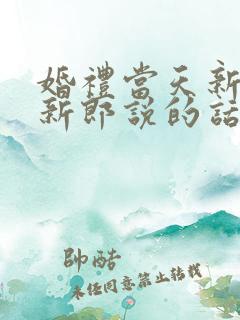 婚禮當天新
新郎說的話
帥酷
未经同意禁止转载